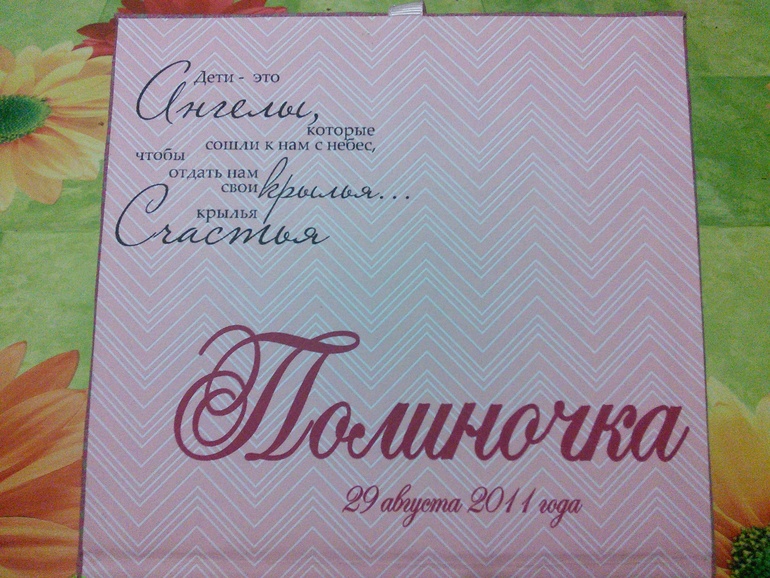 Дети - это
Ангелы,
которые
сошли к нам с небес,
чтобы
отдать нам
свои крылья...
крылья
Счастья
Полиночка
29 августа 2011 года